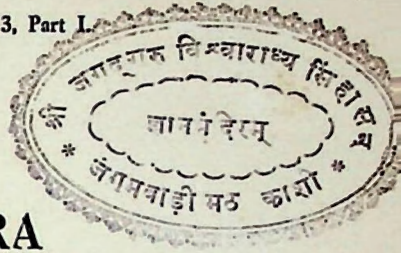 3, Part I.
श्री जगद्गुरु विश्वाराध्य सिंहासन
ज्ञानमंदिरम्
* जंगमवाड़ी मठ काशी *
RA